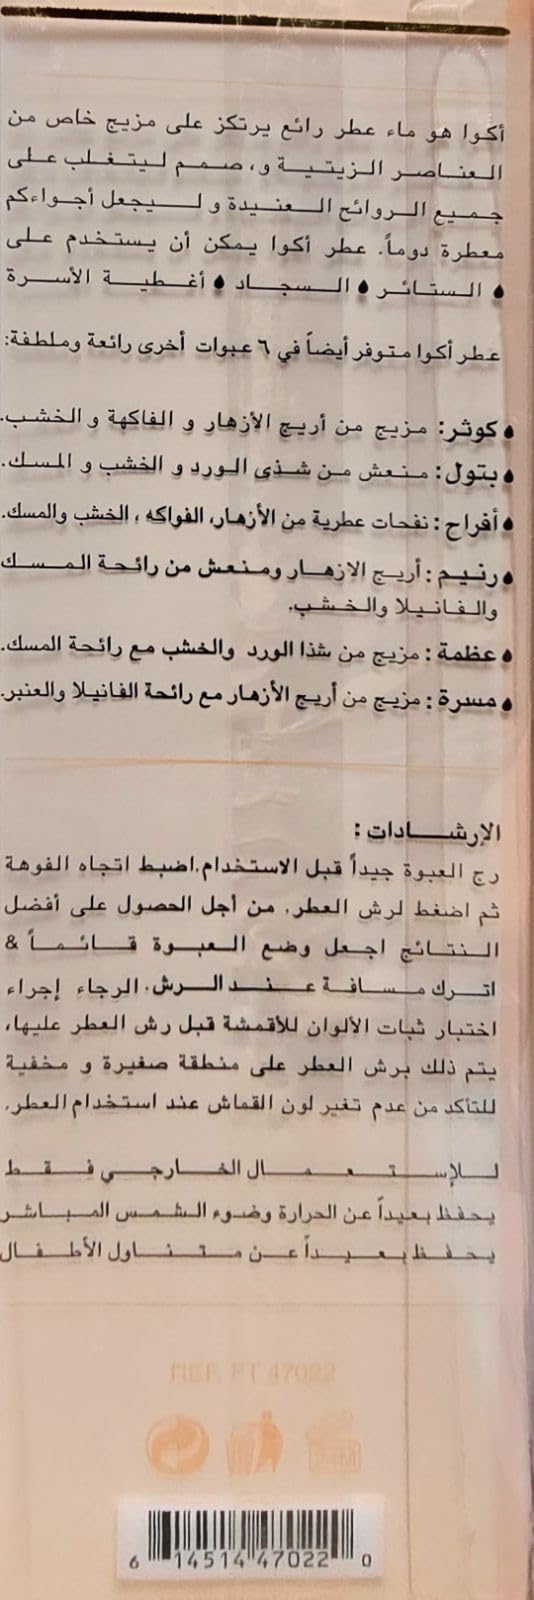 أكوا هو ماء عطر رائع يرتكز على مزيج خاص من
العناصر الزيتية و، صمم ليتغلب على
جميع الروائح العنيدة و ليجعل أجواءكم
معطرة دوماً. عطر أكوا يمكن أن يستخدم على
الستائر السجاد أغطية الأسرة
عطر أكوا متوفر أيضاً في ٦ عبوات أخرى رائعة وملطفة:
كوثر: مزيج من أريج الأزهار و الفاكهة و الخشب.
بتول: منعش من شذى الورد و الخشب و المسك.
أفراح: نفحات عطرية من الأزهار، الفواكه ، الخشب والمسك.
رنيم: أريج الازهار ومنعش من رائحة المسك
والفانيلا والخشب.
عظمة: مزيج من شذا الورد والخشب مع رائحة المسك.
مسرة: مزيج من أريج الأزهار مع رائحة الفانيلا والعنبر.
الإرشادات:
رج العبوة جيداً قبل الاستخدام.اضبط اتجاه الفوهة
ثم اضغط لرش العطر. من أجل الحصول على أفضل
النتائج اجعل وضع العبوة قائماً &
اترك مسافة عند الرش. الرجاء إجراء
اختبار ثبات الألوان للأقمشة قبل رش العطر عليها،
يتم ذلك برش العطر على منطقة صغيرة و مخفية
للتأكد من عدم تغير لون القماش عند استخدام العطر.
للإستعمال الخارجي فقط
يحفظ بعيداً عن الحرارة وضوء الشمس المباشر
يحفظ بعيداً عن متناول الأطفال
REF. RT 47022
6 14514 47022 0